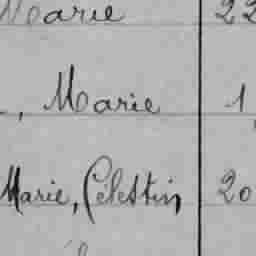 Marie 22
, Marie 1
Marie, Célestin 20